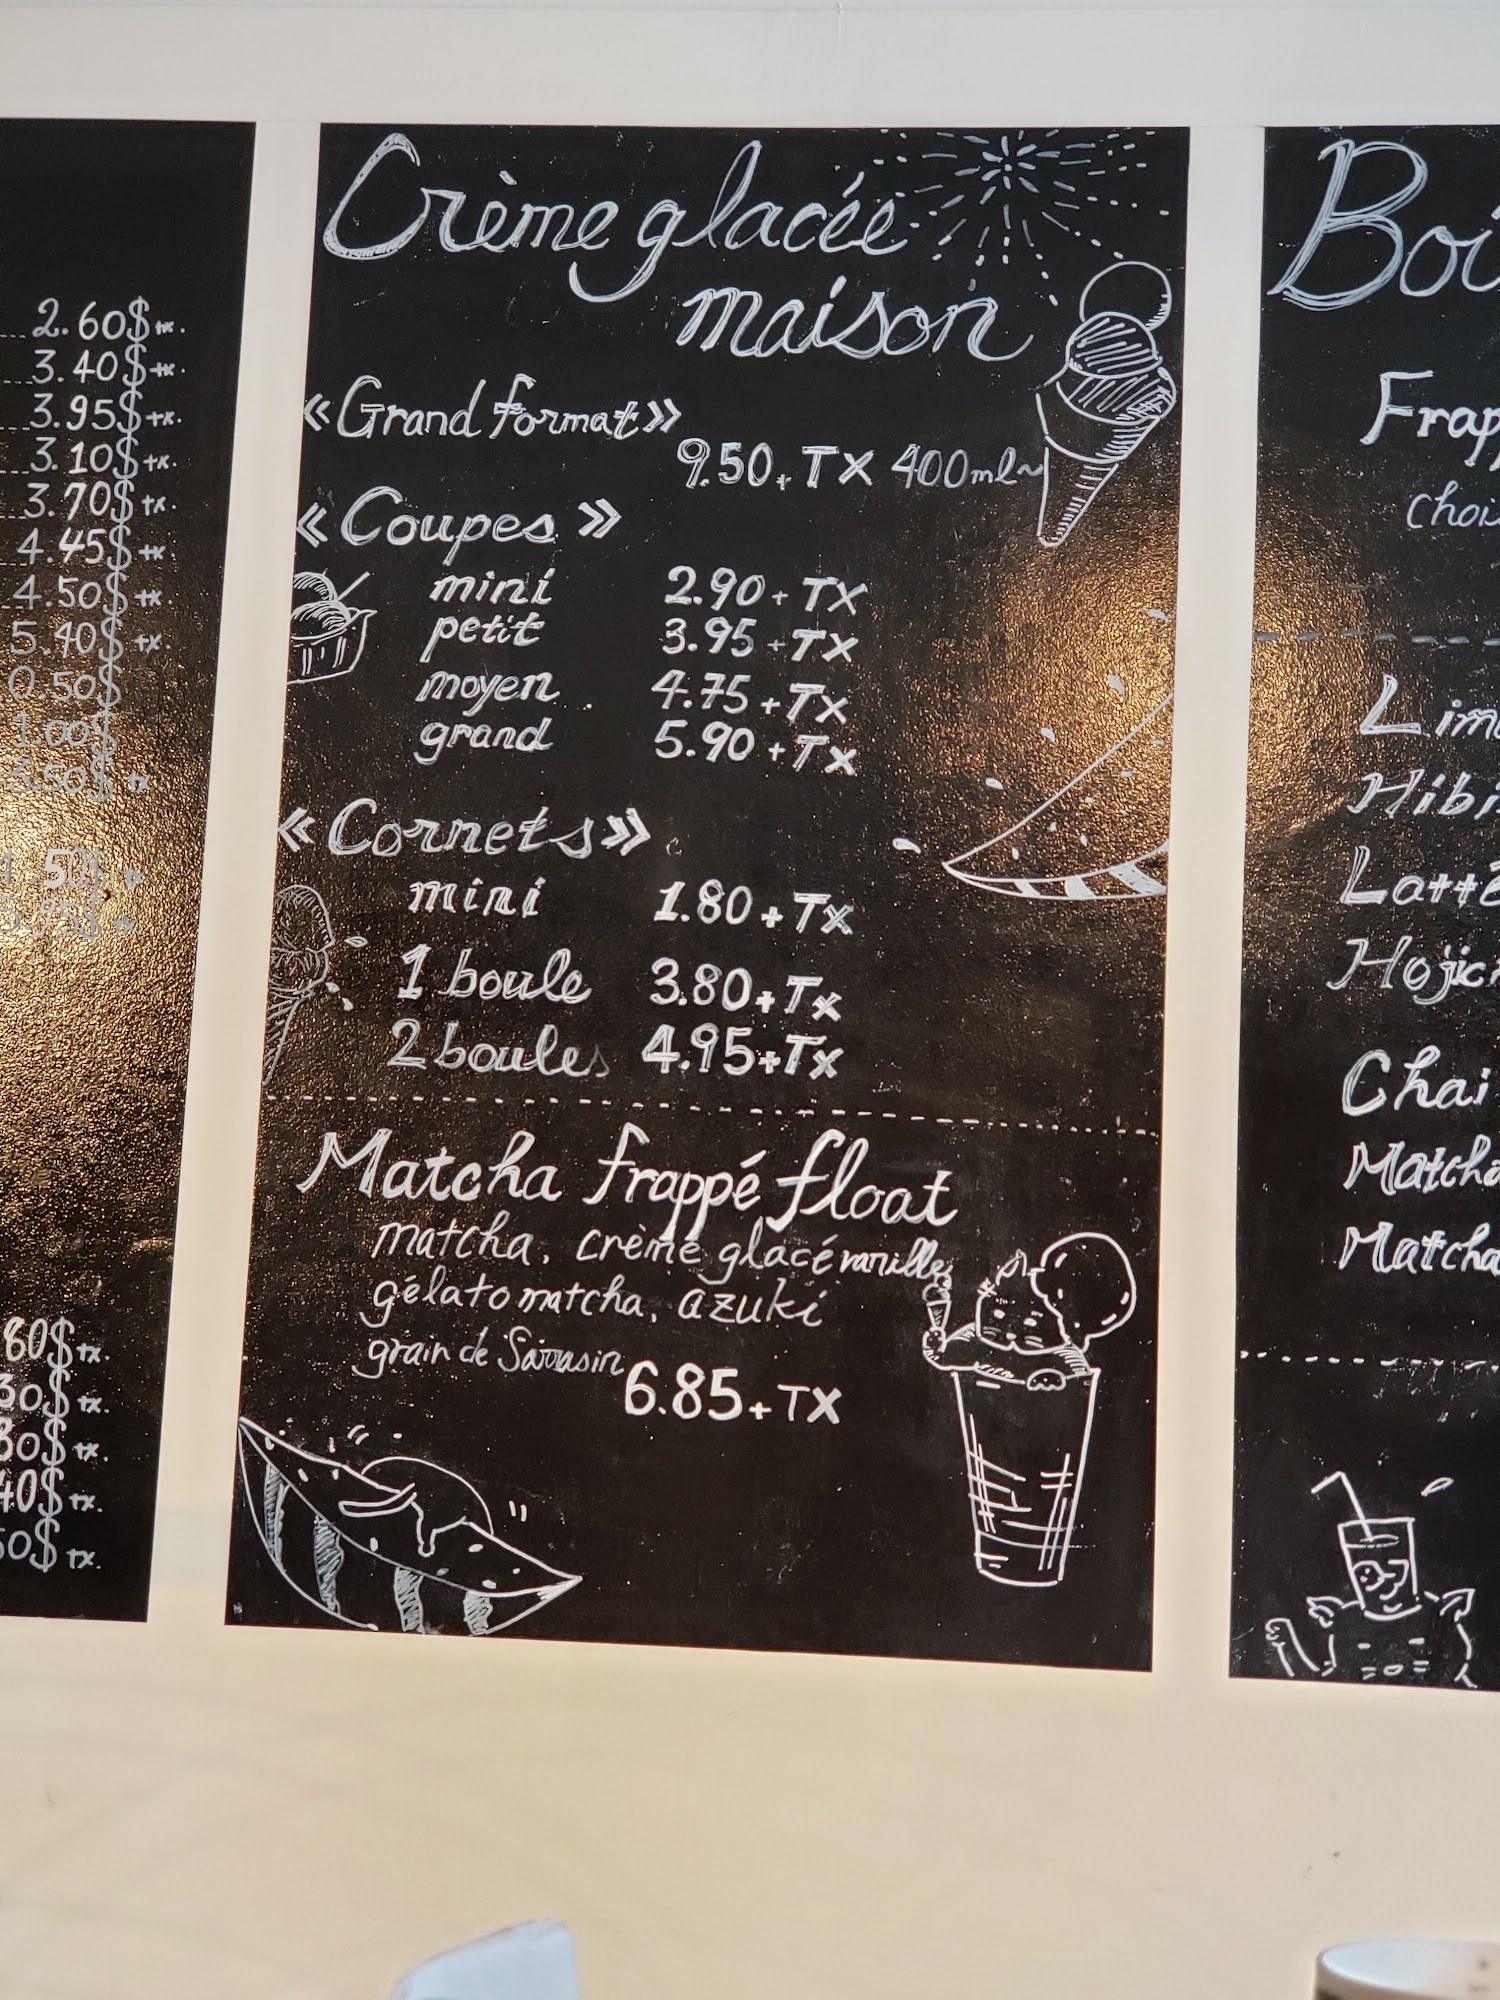 2.60$ tx.
3.40$ tx.
3.95$ tx.
3.10$ tx.
3.70$ tx.
4.45$ tx
4.50$ tx
5.40$ tx
0.50$
1.00$
3.50$ tx
Crème glacée
maison
«Grand format»
9.50 + TX 400ml~
« Coupes »
mini 2.90 + TX
petit 3.95 + TX
moyen 4.75 + TX
grand 5.90 + Tx
«Cornets»
mini 1.80 + Tx
1 boule 3.80 + Tx
2 boules 4.95 + Tx
Matcha frappé float
matcha, crème glacé vanille,
gélato matcha, azuki
grain de Sarrasin
6.85 + TX
80$ tx.
30$ tx.
tx.
40$ tx.
50$ tx.
Boi
Frapp
Chois
Lim
Hibi
Latté
Hojic
Chai
Matcha
Matcha